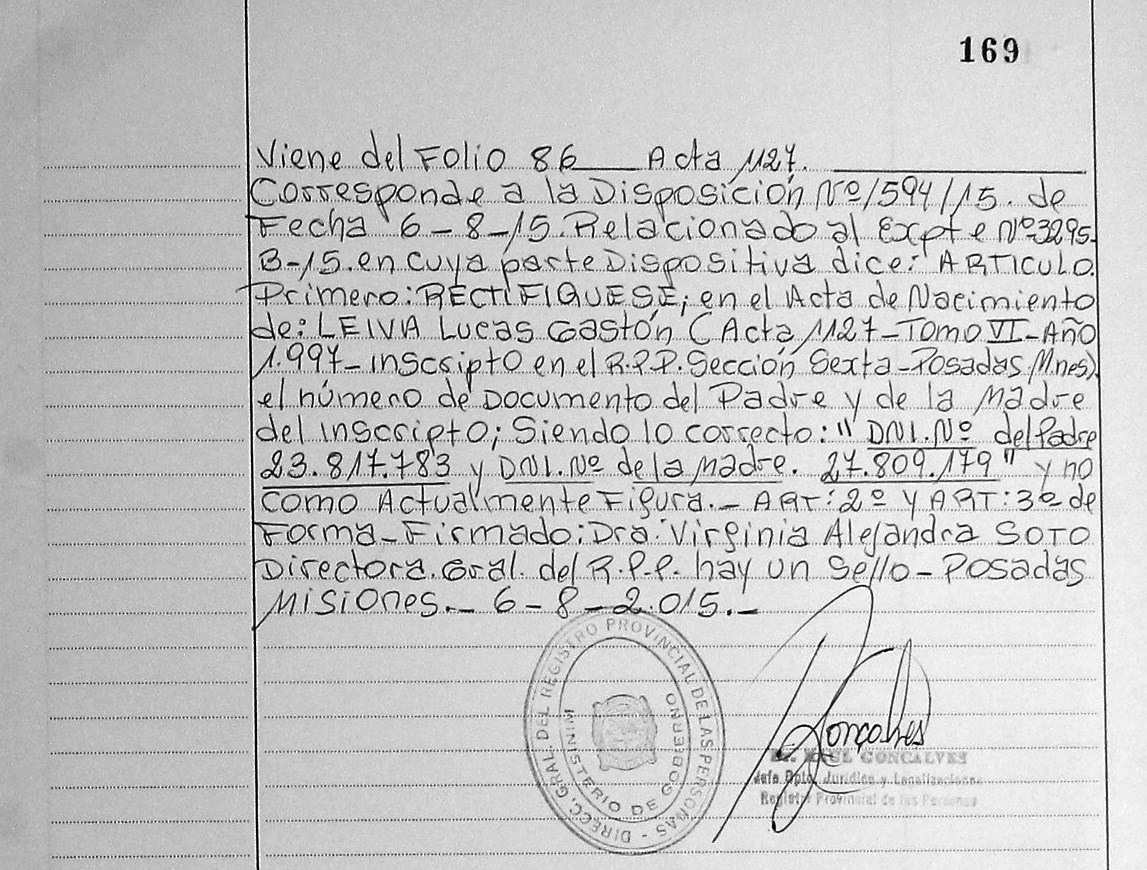 169
Viene del Folio 86 Acta 1127.
Corresponde a la Disposición Nº1594/15. de
Fecha 6-8-15. Relacionado al Expte Nº3295-
B-15. en cuya parte Dispositiva dice: ARTICULO.
Primero: RECTIFIQUESE, en el Acta de Nacimiento
de: LEIVA Lucas Gastón (Acta 1127-Tomo VI-Año
1.997-inscripto en el R.P.P. Sección Sexta-Posadas Mnes)
el número de Documento del Padre y de la Madre
del inscripto; Siendo lo correcto: "DNI. Nº del Padre
23.817.783 y DNI. Nº de la Madre. 27.809.179" y no
como Actualmente Figura.- ART: 2º y ART: 3º de
Forma-Firmado: Dra. Virginia Alejandra SOTO
Directora. Gral. del R.P.P. hay un Sello-Posadas
MISIONES.- 6-8-2.015.-
DIRECC. GRAL. DEL REGISTRO PROVINCIAL DE LAS PERSONAS -
MINISTERIO DE GOBIERNO
Goncalves
Dr. RAUL GONCALVES
Jefe Dpto. Jurídico y Legalizaciones
Registro Provincial de las Personas